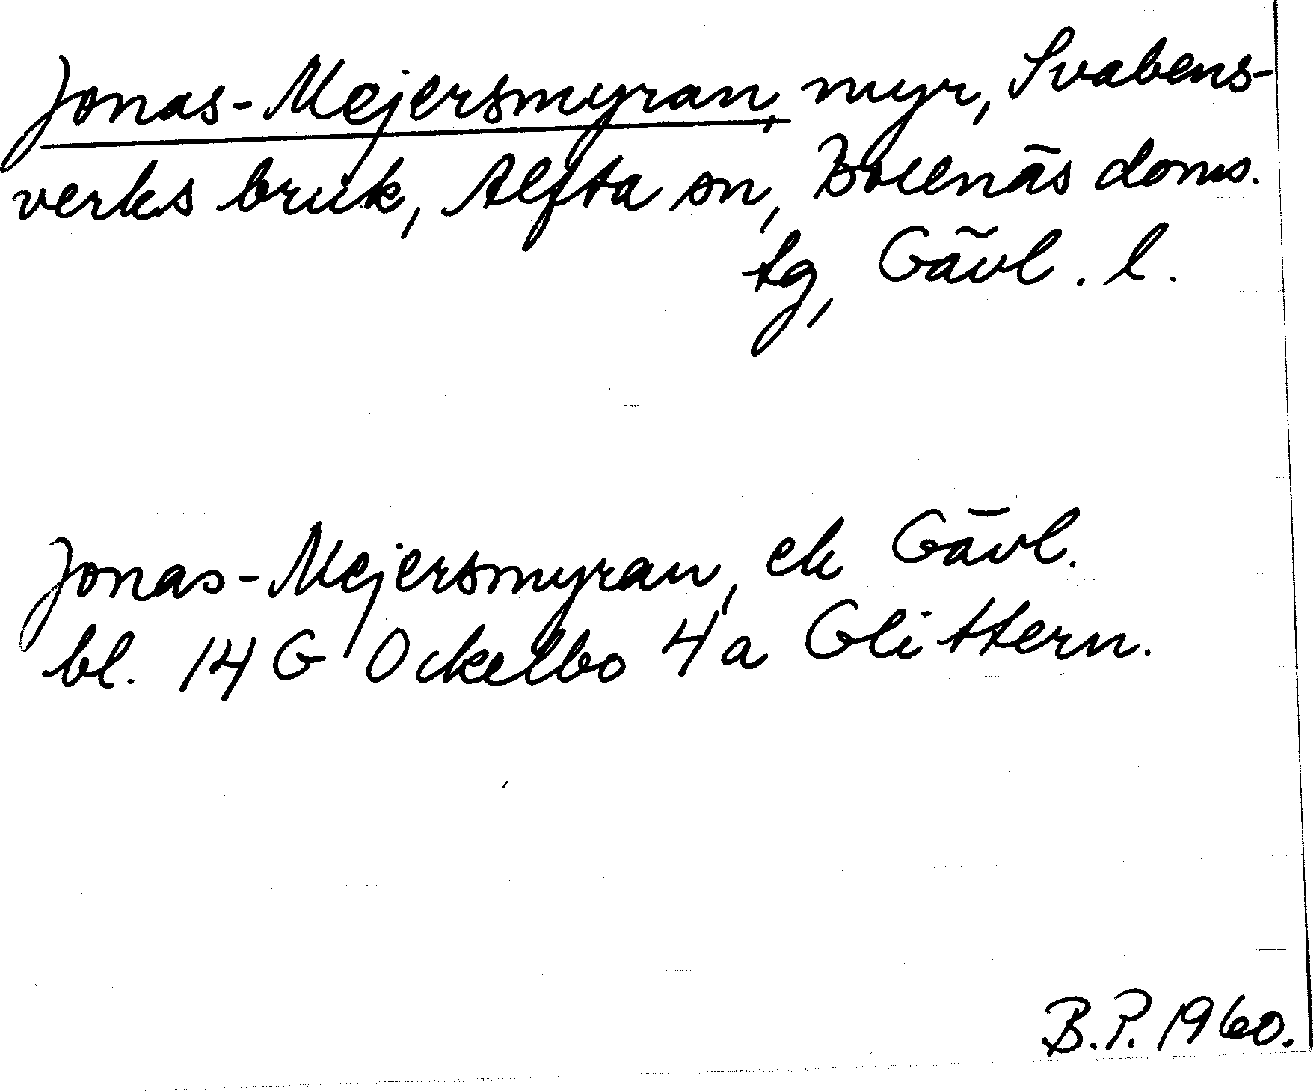 Jonas-Mejersmyran, myr, Svabens-
verks bruk, Alfta sn, Bollnäs doms.
tg, Gävl. l.
Jonas-Mejersmyran, ek Gävl.
bl. 14 G Ockelbo 4 a Glittern.
B.P. 1960.